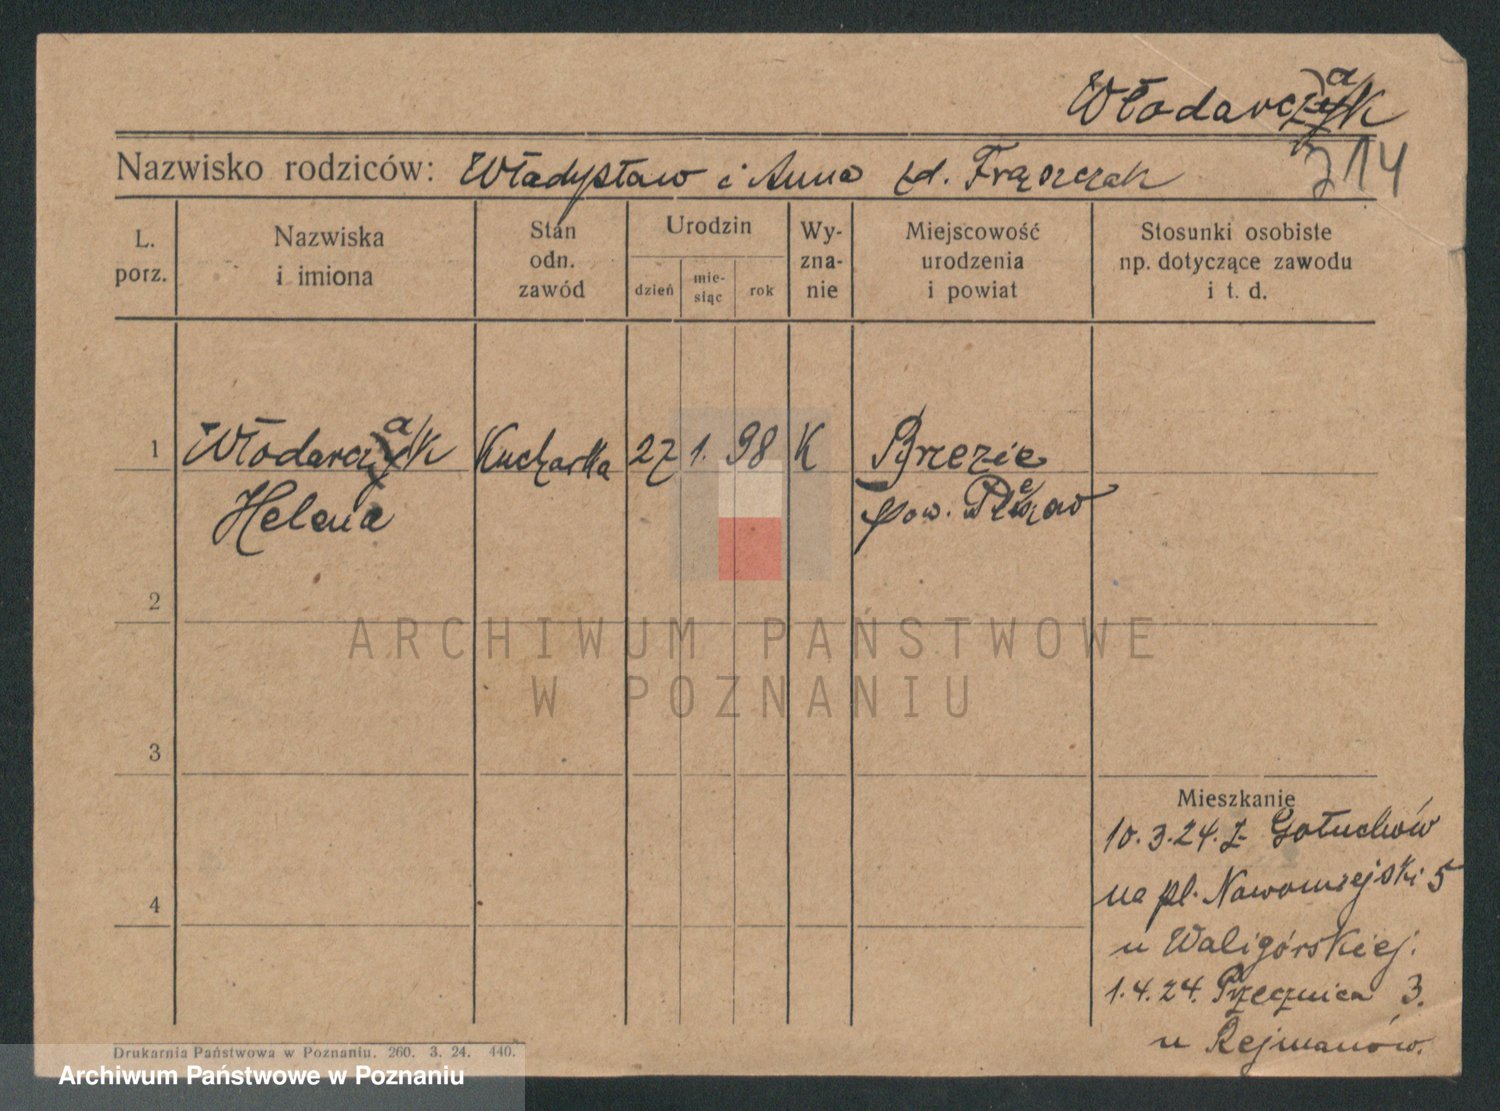 Włodarczak
Nazwisko rodziców: Władysław i Anna zd. Frąszczak
L. porz.
Nazwiska i imiona
Stan odn. zawód
Urodzin
dzień
mie-
siąc
rok
Wy-
zna-
nie
Miejscowość urodzenia i powiat
Stosunki osobiste np. dotyczące zawodu i t. d.
1 Włodarczak Kucharka 27 1. 98 K Brzezie
Helena pow. Pleszew
2
ARCHIWUM PAŃSTWOWE
W POZNANIU
3
Mieszkanie
10.3.24. z Gołuchów
4
na pl. Nowomiejski 5
u Waligórskiej.
1.4.24. Przecznica 3.
u Rejmanów.
Drukarnia Państwowa w Poznaniu. 260. 3. 24. 440.
Archiwum Państwowe w Poznaniu